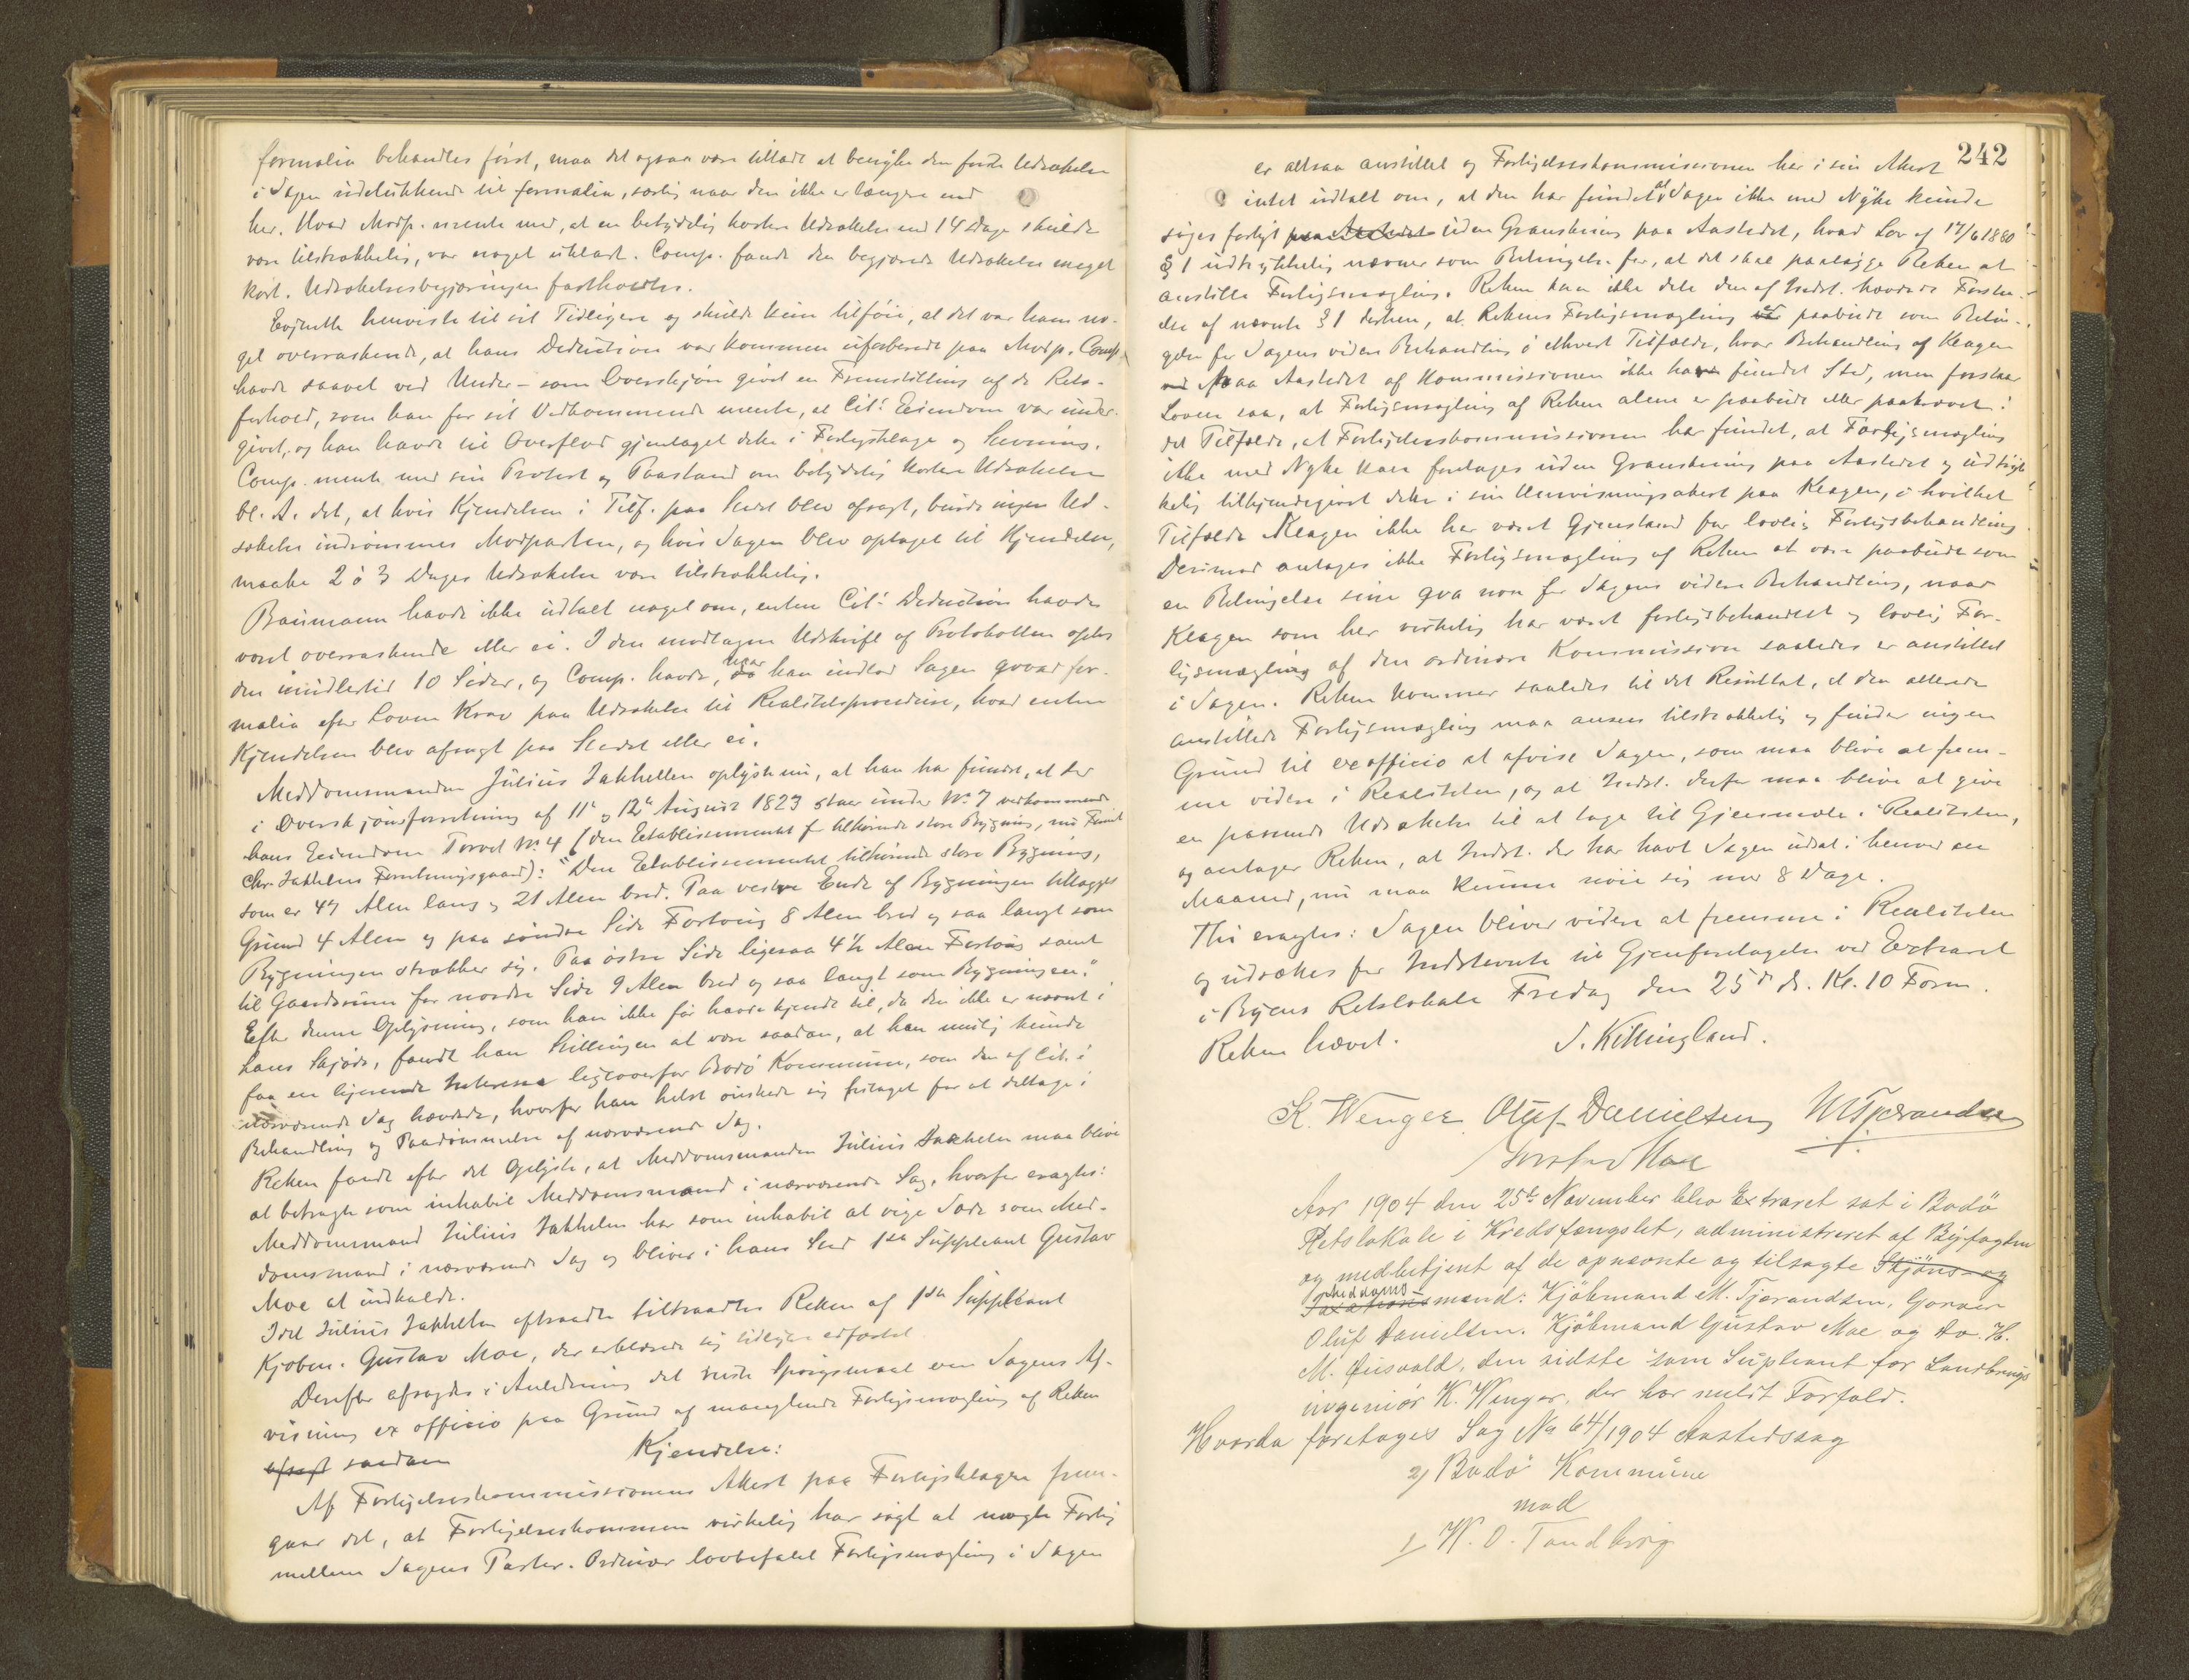 formalia behandles først, maa det ogsaa være tilladt at benytte den første Udsættelse
i Sagen udelukkende til formalia, særlig naar den ikke er længere end
her. Hvad Modp. mente med, at en betydelig kortere Udsættelse end 14 Dage skulde
være tilstrækkelig, var noget uklart. Comp. fandt den begjærede Udsættelse meget
kort. Udsættelsesbegjæringen fastholdtes.
henviste til sit Tidligere og skulde kun tilføie, at det var ham no-
get overraskende, at hans Deduction var kommen uforberedt paa Modp. Comp.
havde saavel ved Under- som Overskjøn givet en Fremstilling af de Rets-
forhold, som han for sit Vedkommende mente, at Cit! Eiendom var under-
givet, og han havde til Overflod gjentaget dette i Forligsklage og Stevning.
Comp. mente med sin Protest og Paastand om betydelig kortere Udsættelse
bl. A. det, at hvis Kjendelsen i Tilf. paa Stedet blev afsagt, burde ingen Ud-
sættelse indrømmes Modparten, og hvis Sagen blev optaget til Kjendelse,
maatte 2 à 3 Dages Udsættelse være tilstrækkelig.
Baumann havde ikke udtalt noget om, enten Cit! Deduction havde
været overraskende eller ei. I den modtagne Udskrift af Protokollen optog
den imidlertid 10 Sider, og Comp. havde, naar han indlod Sagen qvoad for-
malia efter Loven Krav paa Udsættelse til Realitetsprocedure, hvad enten
Kjendelsen blev afsagt paa Stedet eller ei.
Meddomsmanden Julius Jakhellen oplyste nu, at han har fundet, at der
i Overskjønsforretning af 11te og 12te August 1823 staar under No. 7 vedkommende
hans Eiendom Torvet No. 4 (den Etablissementet tilhørende store Bygning, nu
Chr. Jakhelns Forretningsgaard): "Den Etablissementet tilhørende store Bygning,
som er 47 Alen lang og 21 Alen bred. Paa vestre Ende af Bygningen tillægges
Grund 4 Alen og paa søndre Side Fortoug 8 Alen bred og saa langt som
Bygningen strækker sig. Paa østre Side ligesaa 4½ Alen Fortoug samt
til Gaardsrum for nordre Side 9 Alen bred og saa langt som Bygningen."
Efter denne Oplysning, som han ikke før havde kjendt til, da den ikke er nævnt i
hans Skjøde, fandt han Stillingen at være saadan, at han mulig kunde
faa en lignende Interesse ligeoverfor Bodø Kommune, som den af Cit. i
nærværende Sag hævdede, hvorfor han helst ønskede sig fritaget for at deltage i
Behandling og Paadømmelse af nærværende Sag.
Retten fandt efter det Oplyste, at Meddomsmanden Julius Jakhelln maa blive
at betragte som inhabil Meddomsmand i nærværende Sag, hvorfor eragtes:
Meddomsmand Julius Jakhelln har som inhabil at vige Sæde som Med-
domsmand i nærværende Sag og bliver i hans Sted 1ste Suppleant Gustav
Moe at indkalde.
Idet Julius Jakhelln aftraadte tiltraadtes Retten af 1ste Suppleant
Kjøbm. Gustav Moe, der erklærede sig tidligere edfæstet.
Derefter afsagdes i Anledning det reiste Spørgsmaal om Sagens Af-
visning ex officio paa Grund af manglende Forligsmægling af Retten
afsagt saadan Kjendelse:
Af Forligelseskommissionens Attest paa Forligsklagen frem-
gaar det, at Forligelseskommissen virkelig har søgt at mægle Forlig
mellem Sagens Parter. Ordinær lovbefalet Forligsmægling i Sagen
242
er altsaa anstillet og Forligelseskommissionen har i sin Attest
intet udtalt om, at den har fundet, at Sagen ikke med Nytte kunde
søges forligt paa Aastedet uden Granskning paa Aastedet, hvad Lov af 17/6 1880
§ 1 udtrykkelig nævner som Betingelse for, at det skal paalægge Retten at
anstille Forligsmægling. Retten kan ikke dele den af Indst. hævdede Forstaa-
else af nævnte § 1 derhen, at Rettens Forligsmægling er paabudt som Betin-
gelse for Sagens videre Behandling i ethvert Tilfælde, hvor Behandling af Klagen
paa Aastedet af Kommissionen ikke har fundet Sted, men forstaar
Loven saa, at Forligsmægling af Retten alene er paabudt eller paakrævet i
det Tilfælde, at Forligelseskommissionen har fundet, at Forligsmægling
ikke med Nytte kan foretages uden Granskning paa Aastedet og udtryk-
kelig tilkjendegivet dette i sin Henvisningsattest paa Klagen, i hvilket
Tilfælde Klagen ikke har været Gjenstand for lovlig Forligsbehandling.
Derimod antages ikke Forligsmægling af Retten at være paabudt som
en Betingelse sine qva non for Sagens videre Behandling, naar
Klagen som her virkelig har været forligsbehandlet og lovlig For-
ligsmægling af den ordinære Kommission saaledes er anstillet
i Sagen. Retten kommer saaledes til det Resultat, at den allerede
anstillede Forligsmægling maa ansees tilstrækkelig og finder ingen
Grund til ex officio at afvise Sagen, som maa blive at frem-
me videre i Realiteten, og at Indst. derfor maa blive at give
en passende Udsættelse til at tage til Gjenmæle i Realiteten,
og antager Retten, at Indst. der har havt Sagen udsat i henved en
Maaned, nu maa kunne nøie sig med 8 Dage.
Thi eragtes: Sagen bliver videre at fremme i Realiteten
og udsættes for Indstevnte til Gjenforetagelse ved Extraret
i Byens Retslokale Fredag den 25de ds. Kl. 10 Form.
Retten hævet. S. Killingland.
K. Wenger Oluf Danielsen M Tjærandsen
Gustav Moe
Aar 1904 den 25de November blev Extraret sat i Bodø
Retslokale i Kredsfængslet, administreret af Byfogden
og medbetjent af de opnævnte og tilsagte Skjøns- og
Taxations meddomsmænd: Kjøbmand M. Tjærandsen, Garver
Oluf Danielsen. Kjøbmand Gustav Moe og do. H.
M. , den sidste som Supleant for Landbrugs
ingeniør K. Wenger, der har meldt Forfald.
Hvorda foretages Sag No 64/1904 Aastedssag
2/ Bodø Kommune
mod
1/ W. O. Tandberg